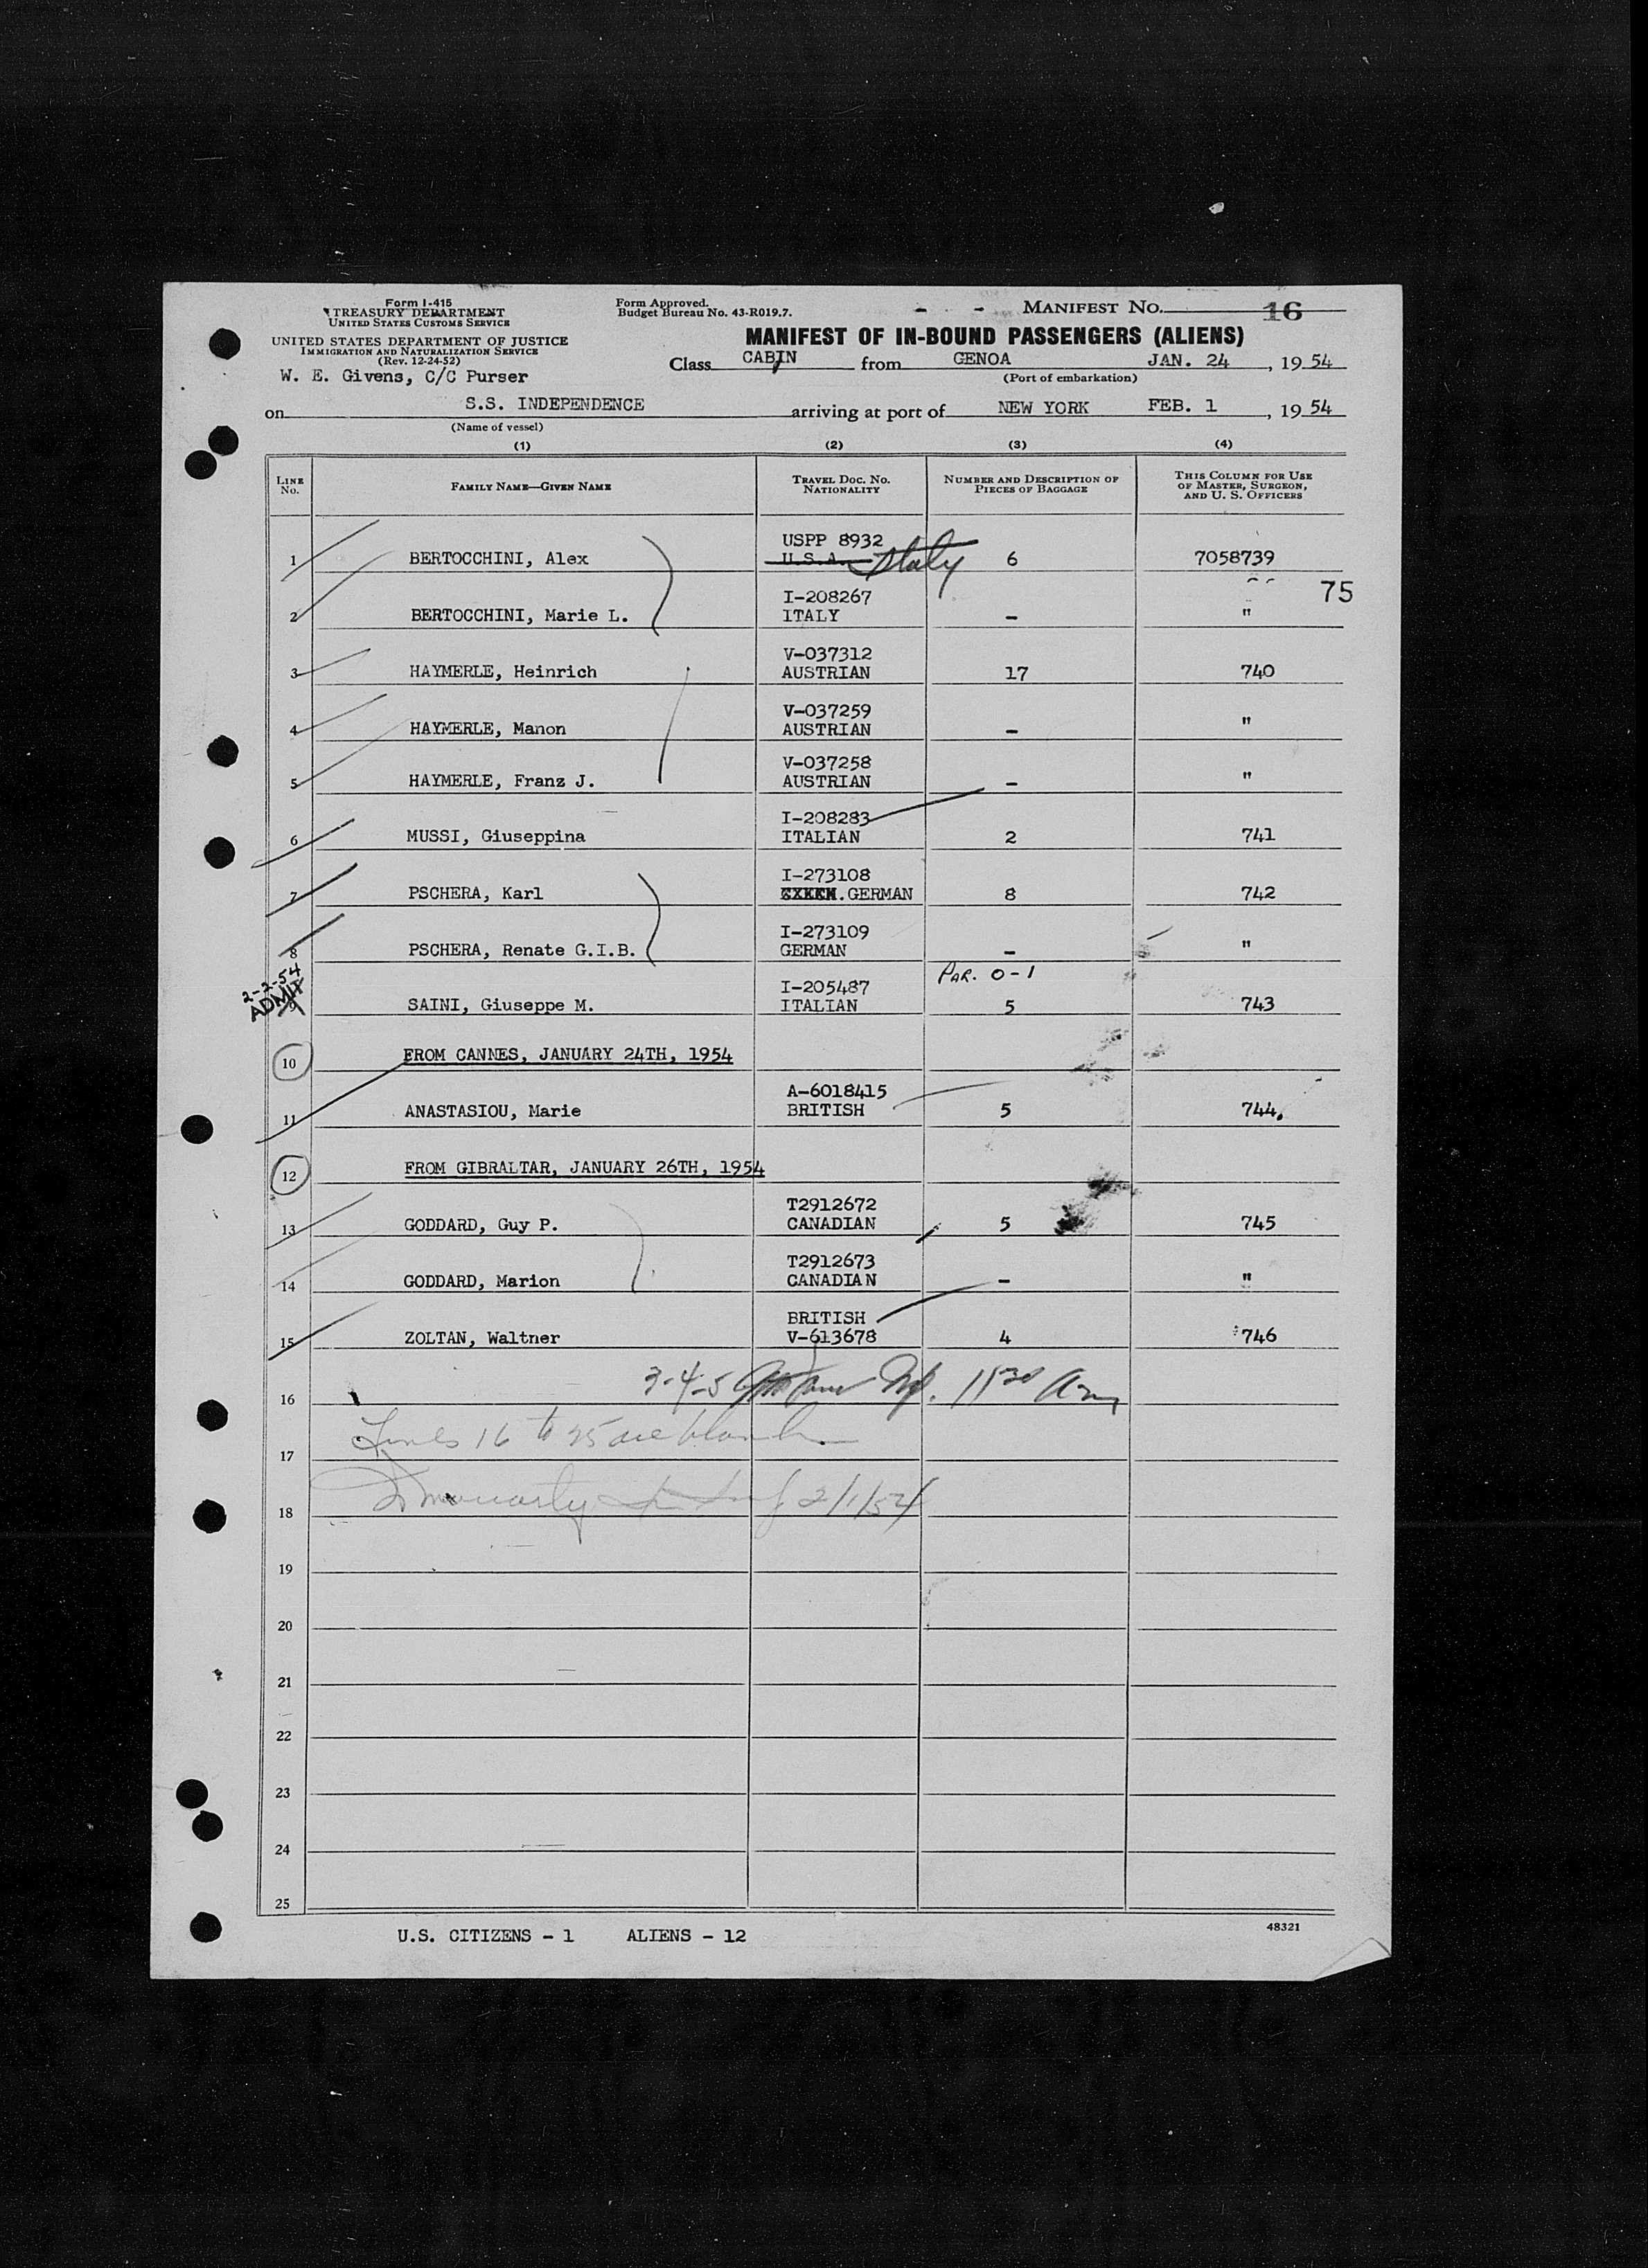 Form I-415
TREASURY DEPARTMENT
UNITED STATES CUSTOMS SERVICE
UNITED STATES DEPARTMENT OF JUSTICE
IMMIGRATION AND NATURALIZATION SERVICE
(Rev. 12-24-52)
W. E. Givens, C/C Purser
Form Approved.
Budget Bureau No. 43-R019.7.
MANIFEST No. 16
MANIFEST OF IN-BOUND PASSENGERS (ALIENS)
Class CABIN from GENOA JAN. 24, 19 54
(Port of embarkation)
on S.S. INDEPENDENCE arriving at port of NEW YORK FEB. 1, 19 54
(Name of vessel)
(1) (2) (3) (4)
LINE No. FAMILY NAME—GIVEN NAME TRAVEL DOC. No. NATIONALITY NUMBER AND DESCRIPTION OF PIECES OF BAGGAGE THIS COLUMN FOR USE OF MASTER, SURGEON, AND U. S. OFFICERS
USPP 8932
1 BERTOCCHINI, Alex U.S.A. Italy 6 7058739
75
I-208267
2 BERTOCCHINI, Marie L. ITALY - "
V-037312
3 HAYMERLE, Heinrich AUSTRIAN 17 740
V-037259
4 HAYMERLE, Manon AUSTRIAN - "
V-037258
5 HAYMERLE, Franz J. AUSTRIAN - "
I-208283
6 MUSSI, Giuseppina ITALIAN 2 741
I-273108
7 PSCHERA, Karl CZECH. GERMAN 8 742
I-273109
8 PSCHERA, Renate G.I.B. GERMAN - "
2-2-54
ADMIT
PAR. 0-1
I-205487
9 SAINI, Giuseppe M. ITALIAN 5 743
10 FROM CANNES, JANUARY 24TH, 1954
A-6018415
11 ANASTASIOU, Marie BRITISH 5 744.
12 FROM GIBRALTAR, JANUARY 26TH, 1954
T2912672
13 GODDARD, Guy P. CANADIAN 5 745
T2912673
14 GODDARD, Marion CANADIAN - "
BRITISH
15 ZOLTAN, Waltner V-613678 4 746
16 3-4-5 11 30 Am
Lines 16 to 25 are blank
17
18 Moriarty 2/1/54
19
20
21
22
23
24
25
U.S. CITIZENS - 1 ALIENS - 12
48321